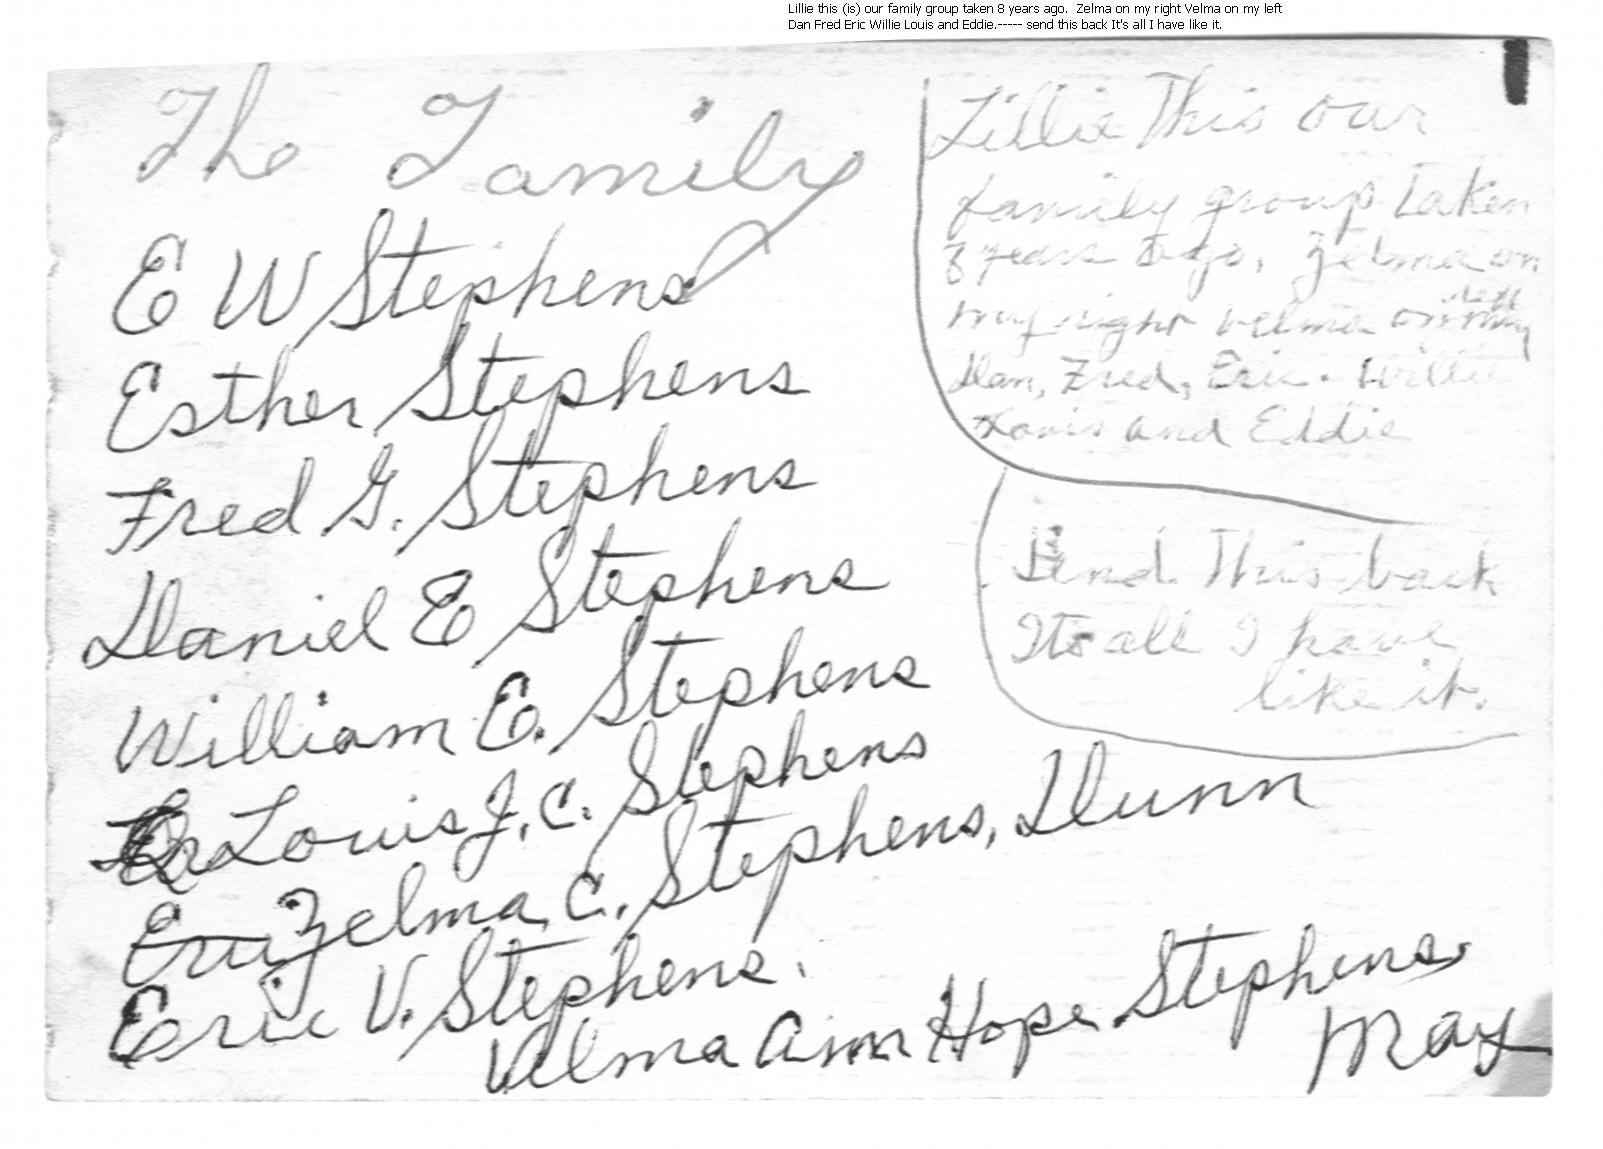 Lillie this (is) our family group taken 8 years ago.  Zelma on my right Velma on my left
Dan Fred Eric Willie Louis and Eddie.----- send this back It's all I have like it.
The Family
E W Stephens
Esther Stephens
Fred G. Stephens
Daniel E Stephens
William E. Stephens
Louis J. C. Stephens
Eric Zelma C. Stephens, Dunn
Eric V. Stephens.
Velma Ann Hope Stephens.
May
Lillie This our
family group taken
8 years ago. Zelma on
my right velma on my left
Dan, Fred, Eric. Willie
Louis and Eddie
Send This back
Its all I have
like it.